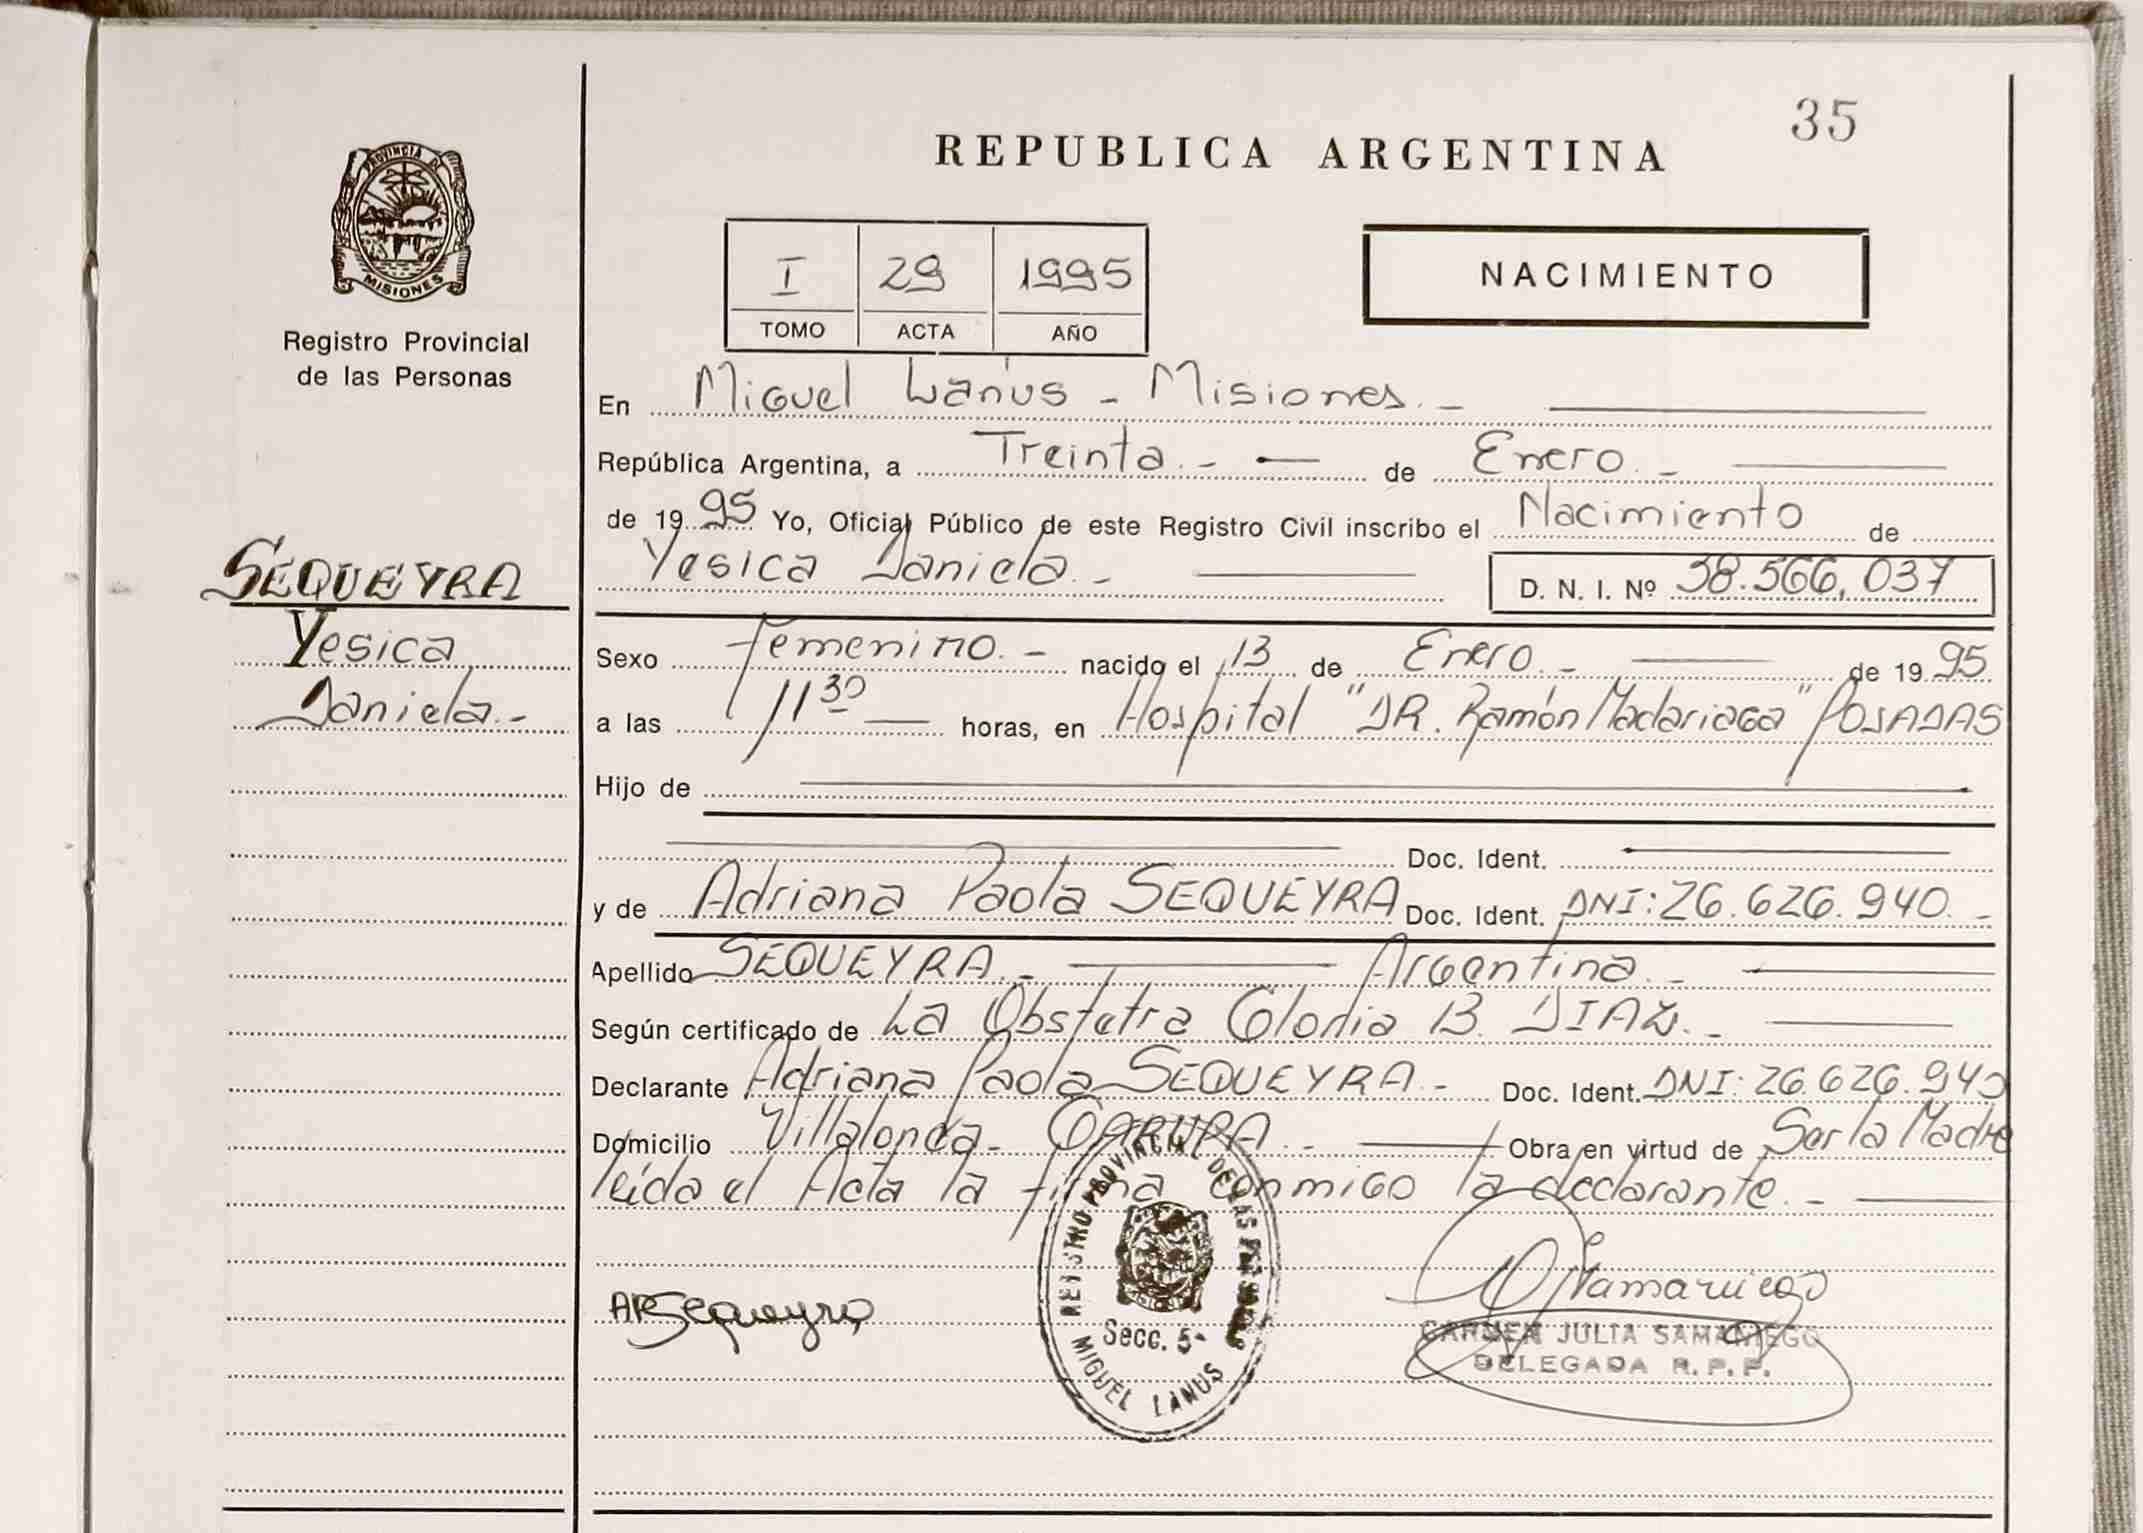 35
REPUBLICA ARGENTINA
PROVINCIA DE
MISIONES
Registro Provincial
de las Personas
I 29 1995
TOMO ACTA AÑO
NACIMIENTO
En Miguel Lanús - Misiones. -
República Argentina, a Treinta. - de Enero. -
de 1995 Yo, Oficial Público de este Registro Civil inscribo el Nacimiento de
Yesica Daniela. - D. N. I. Nº 38.566,037
SEQUEYRA
Yesica
Daniela. -
Sexo femenino. - nacido el 13 de Enero. - de 1995
a las 11 30 horas, en Hospital "DR. Ramón Madariaga" POSADAS
Hijo de
Doc. Ident.
y de Adriana Paola SEQUEYRA Doc. Ident. DNI: 26.626.940. -
Apellido SEQUEYRA. - Argentina. -
Según certificado de La Obstetra Gloria B. DIAZ. -
Declarante Adriana Paola SEQUEYRA. - Doc. Ident. DNI: 26.626.940
Domicilio Villalonga - GARUPA. - Obra en virtud de Ser la Madre
leída el Acta la firma conmigo la declarante. -
APSequeyra
REGISTRO PROVINCIAL DE LAS PERSONAS
Secc. 5-
MIGUEL LANUS
CARMEN JULIA SAMANIEGO
DELEGADA R. P. P.